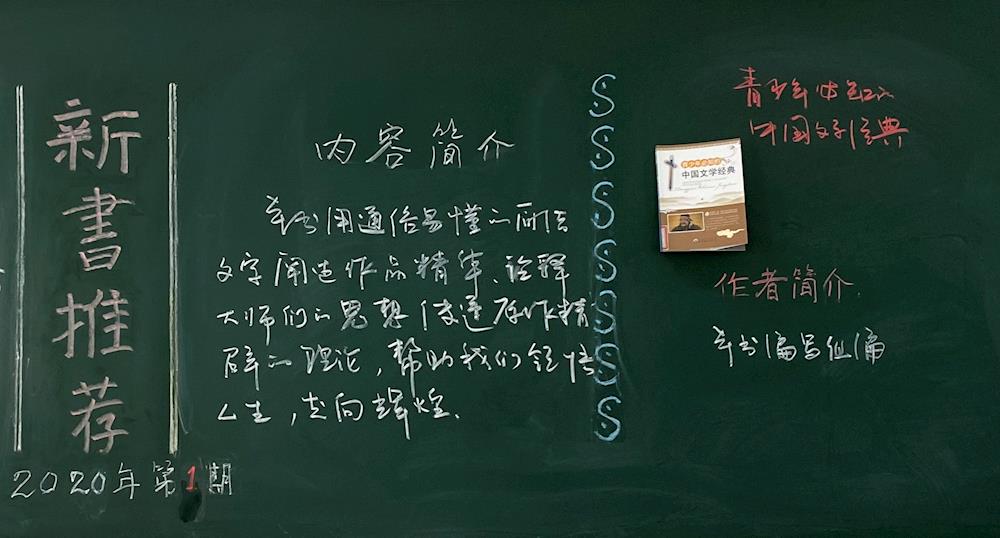 新
書
推
荐
2020年第1期
内容简介
本书用通俗易懂的简洁
文字阐述作品精华、诠释
大师们的思想传递原作精
辟的理论，帮助我们领悟
人生，走向辉煌.
青少年必知的
中国文学经典
青少年必知的
中国文学经典
作者简介
本书编写组编